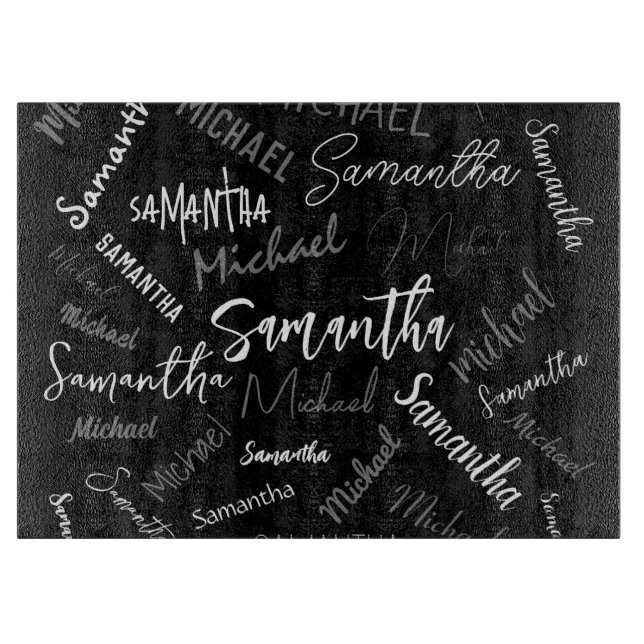 Michael
Samantha
MICHAEL
MICHAEL
Samantha
Samantha
SAMANTHA
Michael
Michael
SAMANTHA
Michael
Michael
Samantha
Michael
Samantha
Michael
Samantha
Samantha
Michael
Michael
Michael
Samantha
Michael
Samantha
Samantha
Samantha
Michael
Michael
Samantha
SAMANTHA